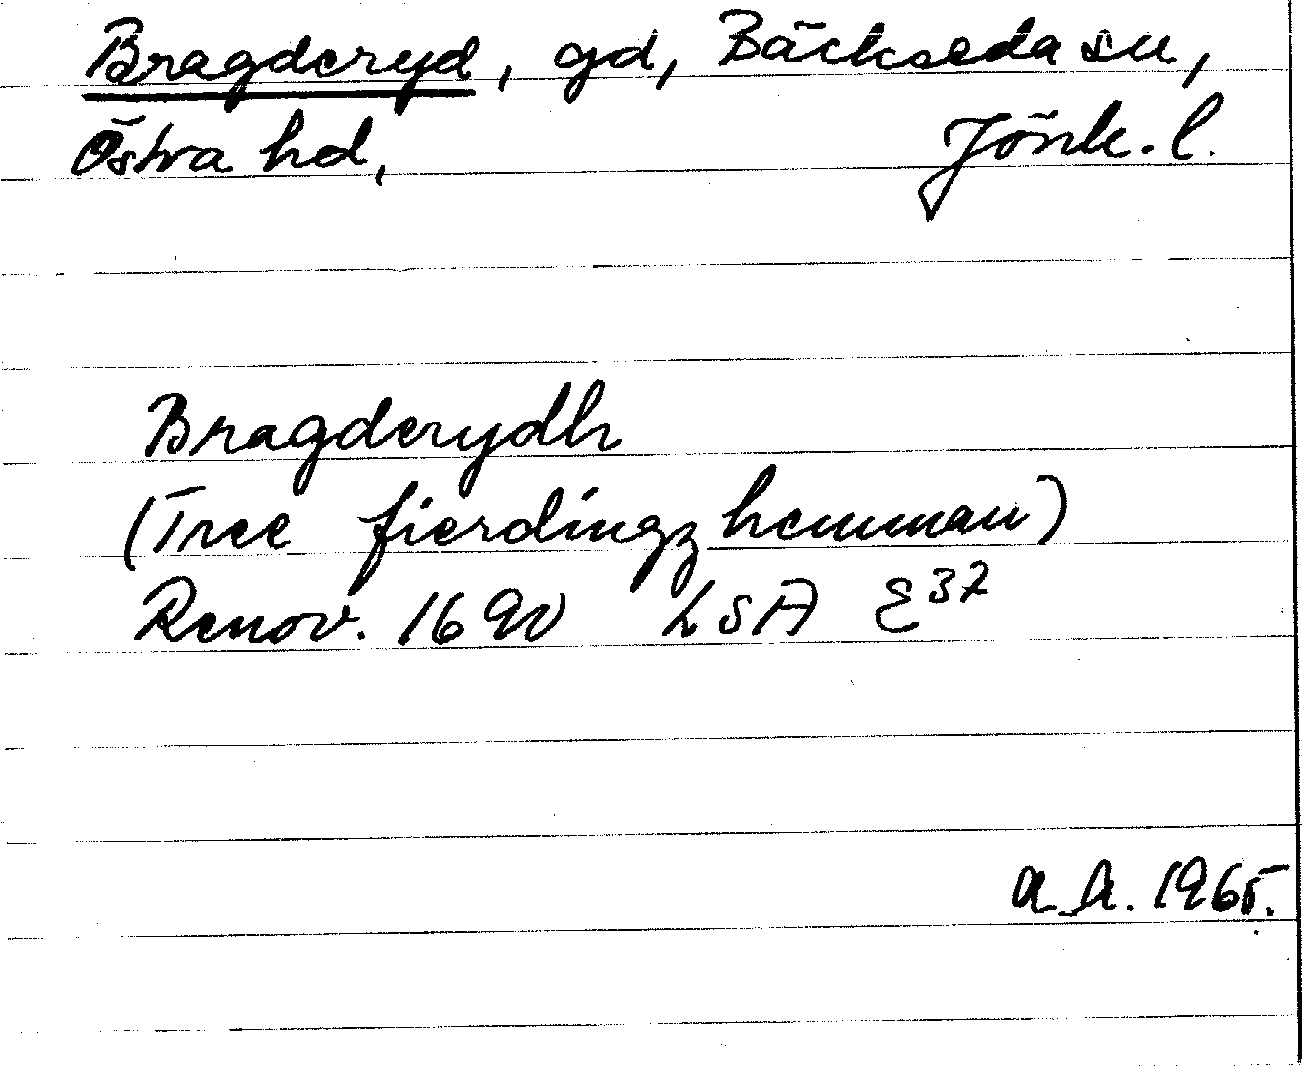 Bragderyd, gd, Bäckseda sn,
Östra hd, Jönk. l.
Bragderydh
(Tree fierdingz hemman)
Renov. 1690 LSA E³⁷
A.A. 1965.